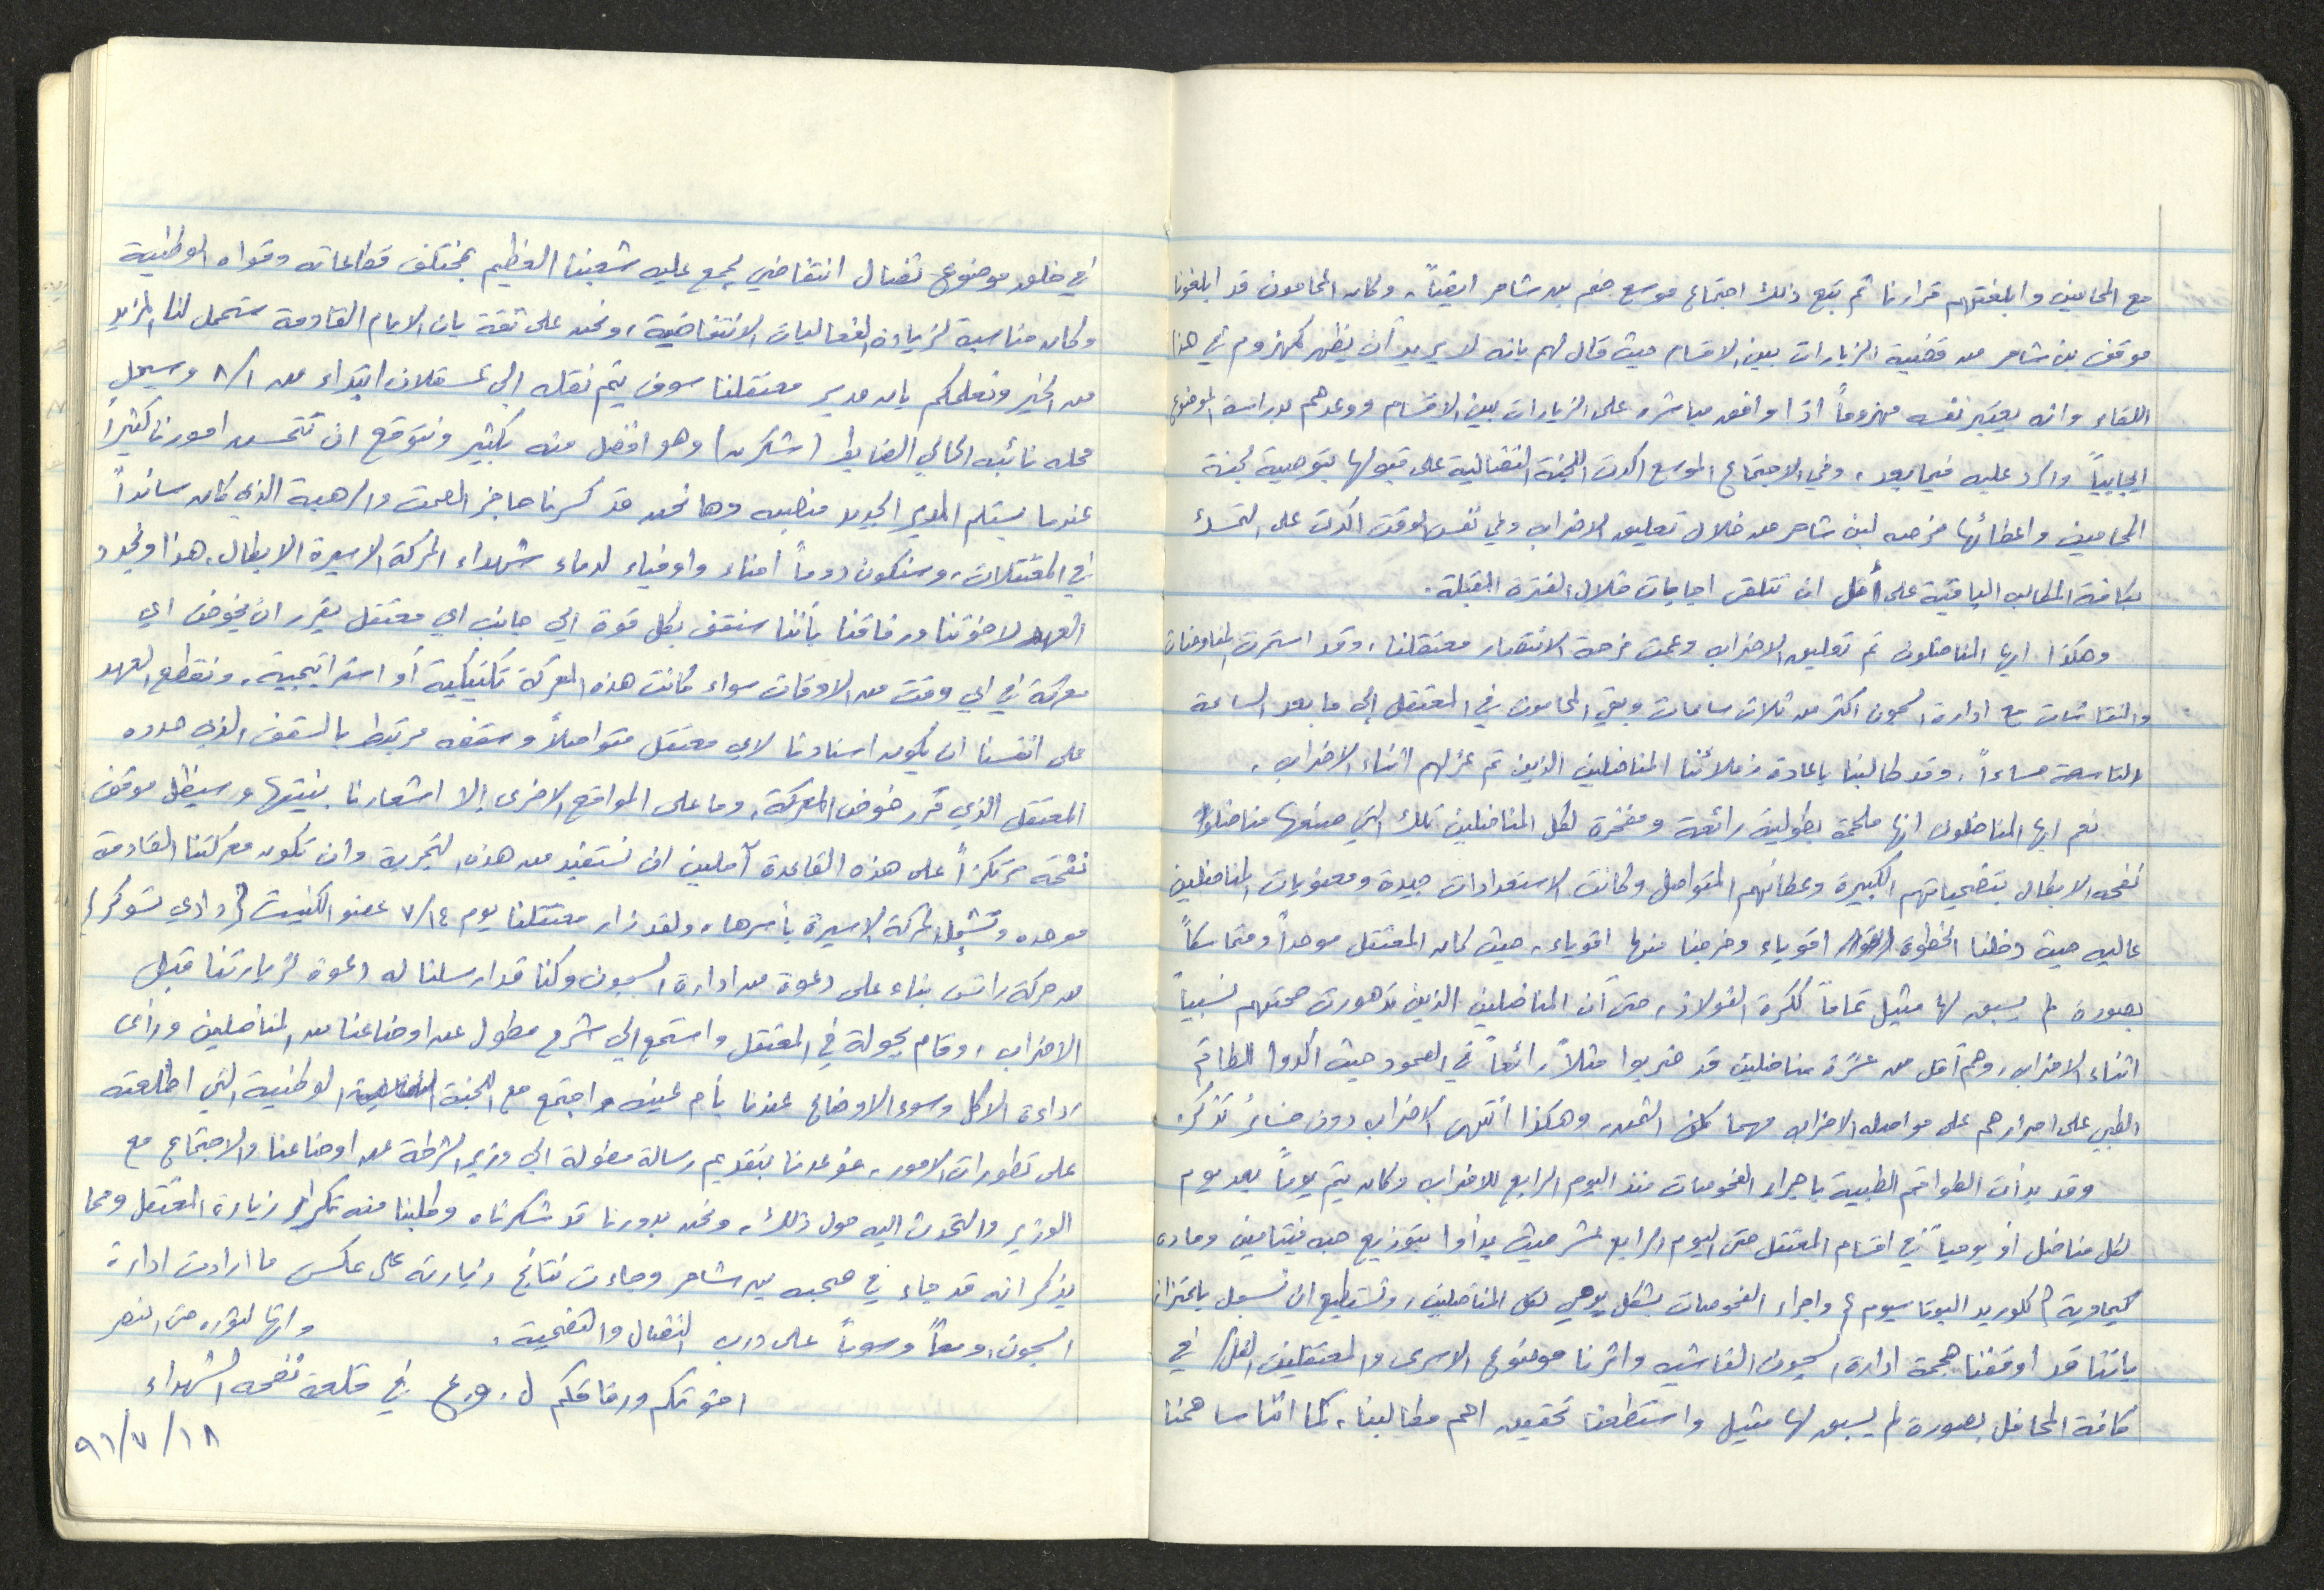 مع المحامين وابلغتهم قرارنا ثم تبع ذلك اجتماع موسع ضم بن شاحر ايضاً، وكان المحامون قد ابلغونا
موقف بن شاحر من قضية الزيارات بين الاقسام حيث قال لهم بانه لا يريد أن يظهر كمهزوم في هذا
اللقاء وانه يعتبر نفسه مهزوماً اذا وافق مباشرة على الزيارات بين الاقسام ووعدهم بدراسة الموضوع
ايجابياً والرد عليه فيما بعد، وفي الاجتماع الموسع اكدت اللجنة النضالية على قبولها بتوصية لجنة
المحامين واعطائها فرصه لبن شاحر من خلال تعليق الاضراب وفي نفس الوقت اكدت على التمسك
بكافة المطالب الباقية على أمل ان نتلقى اجابات خلال الفترة المقبلة.
وهكذا ايها المناضلون تم تعليق الاضراب وعمت فرحة الانتصار معتقلنا، وقد استمرت المفاوضات
والنقاشات مع ادارة السجون اكثر من ثلاث ساعات وبقي المحامون في المعتقل إلى ما بعد الساعة
التاسعة مساءاً، وقد طالبنا باعادة زملائنا المناضلين الذين تم عزلهم اثناء الاضراب.
نعم ايها المناضلون انها ملحمة بطولية رائعة ومفخرة لكل المناضلين تلك التي صنعها مناضلوا
نفحه الابطال بتضحياتهم الكبيرة وعطائهم المتواصل وكانت الاستعدادات جيدة ومعنويات المناضلين
عاليه حيث دخلنا الخطوة اقوياء وخرجنا منها اقوياء، حيث كان المعتقل موحداً ومتماسكاً
بصورة لم يسبق لها مثيل تماماً ككرة الفولاذ، حتى أن المناضلين الذين تدهورت صحتهم نسبياً
اثناء الاضراب، وهم أقل من عشرة مناضلين قد ضربوا مثلاً رائعاً في الصمود حيث اكدوا للطاقم
الطبي على اصرارهم على مواصله الاضراب مهما كلف الثمن، وهكذا انتهى الاضراب دون خسائر تذكر.
وقد بدأت الطواقم الطبية باجراء الفحوصات منذ اليوم الرابع للاضراب وكان يتم يوماً بعد يوم
لكل مناضل أو يومياً في اقسام المعتقل حتى اليوم الرابع عشر حيث بدأوا بتوزيع حبه فيتامين وماده
كيماوية { كلوريد البوتاسيوم } واجراء الفحوصات بشكل يومي لكل المناضلين، ونستطيع ان نسجل باعتزاز
باننا قد أوقفنا هجمة ادارة السجون الفاشيه واثرنا موضوع الاسرى والمعتقلين في
كافة المحافل بصورة لم يسبق لها مثيل واستطعنا تحقيق اهم مطالبنا، كما اننا ساهمنا
في خلق موضوع نضال انتفاضي يجمع عليه شعبنا العظيم بمختلف قطاعاته وقواه الوطنية
وكان مناسبة لزيادة الفعاليات الانتفاضية، ونحن على ثقة بان الايام القادمة ستحمل لنا المزيد
من الخير ونعلمكم بان مدير معتقلنا سوف يتم نقله الى عسقلان ابتداء من ٨/١ وسيحل
محله نائبه الحالي الضابط (شكرن) وهو افضل منه بكثير ونتوقع ان تتحسن امورنا كثيراً
عندما يستلم المدير الجديد منصبه وها نحن قد كسرنا حاجز الصمت والرهبة الذي كان سائداً
في المعتقلات، وسنكون دوماً امناء واوفياء لدماء شهداء الحركة الاسيرة الابطال، هذا ونجدد
العهد لاخوتنا ورفاقنا بأننا سنقف بكل قوة الى جانب اي معتقل يقرر ان يخوض اي
معركة في اي وقت من الاوقات سواء كانت هذه المعركة تكتيكية أو استراتيجية، ونقطع العهد
على انفسنا ان يكون اسنادنا لاي معتقل متواصلاً وسقفه مرتبط بالسقف الذي حدده
المعتقل الذي قرر خوض المعركة، وما على المواقع الاخرى إلا اشعارنا بنيتها وسيظل موقف
نفحة مرتكزاً على هذه القاعدة آملين ان نستفيد من هذه التجربة وان تكون معركتنا القادمة
موحده وتشمل الحركة الاسيرة بأسرها، ولقد زار معتقلنا يوم ٧/١٤ عضو الكنيست { دادي تسوكر }
من حركة راتس بناء على دعوة من ادارة السجون وكنا قد ارسلنا له دعوة لزيارتنا قبل
الاضراب، وقام بجولة في المعتقل واستمع الى شرح مطول عن اوضاعنا من المناضلين ورأى
رداءة الاكل وسوء الاوضاع عندنا بأم عينه واجتمع مع اللجنة النضالية الوطنية التي اطلعته
على تطورات الامور، فوعدنا بتقديم رسالة مفصلة الى وزير الشرطة عن اوضاعنا والاجتماع مع
الوزير والتحدث اليه حول ذلك، ونحن بدورنا قد شكرناه وطلبنا منه تكرار زيارة المعتقل ومما
يذكر انه قد جاء في صحبه بن شاحر وجاءت نتائج زيارته على عكس ما ارادت ادارة
السجون، ومعاً وسوياً على درب النضال والتضحية. وانها لثوره حتى النصر
اخوتكم ورفاقكم ل. و. ع في قلعة نفحه الشهداء
٩١/٧/١٨